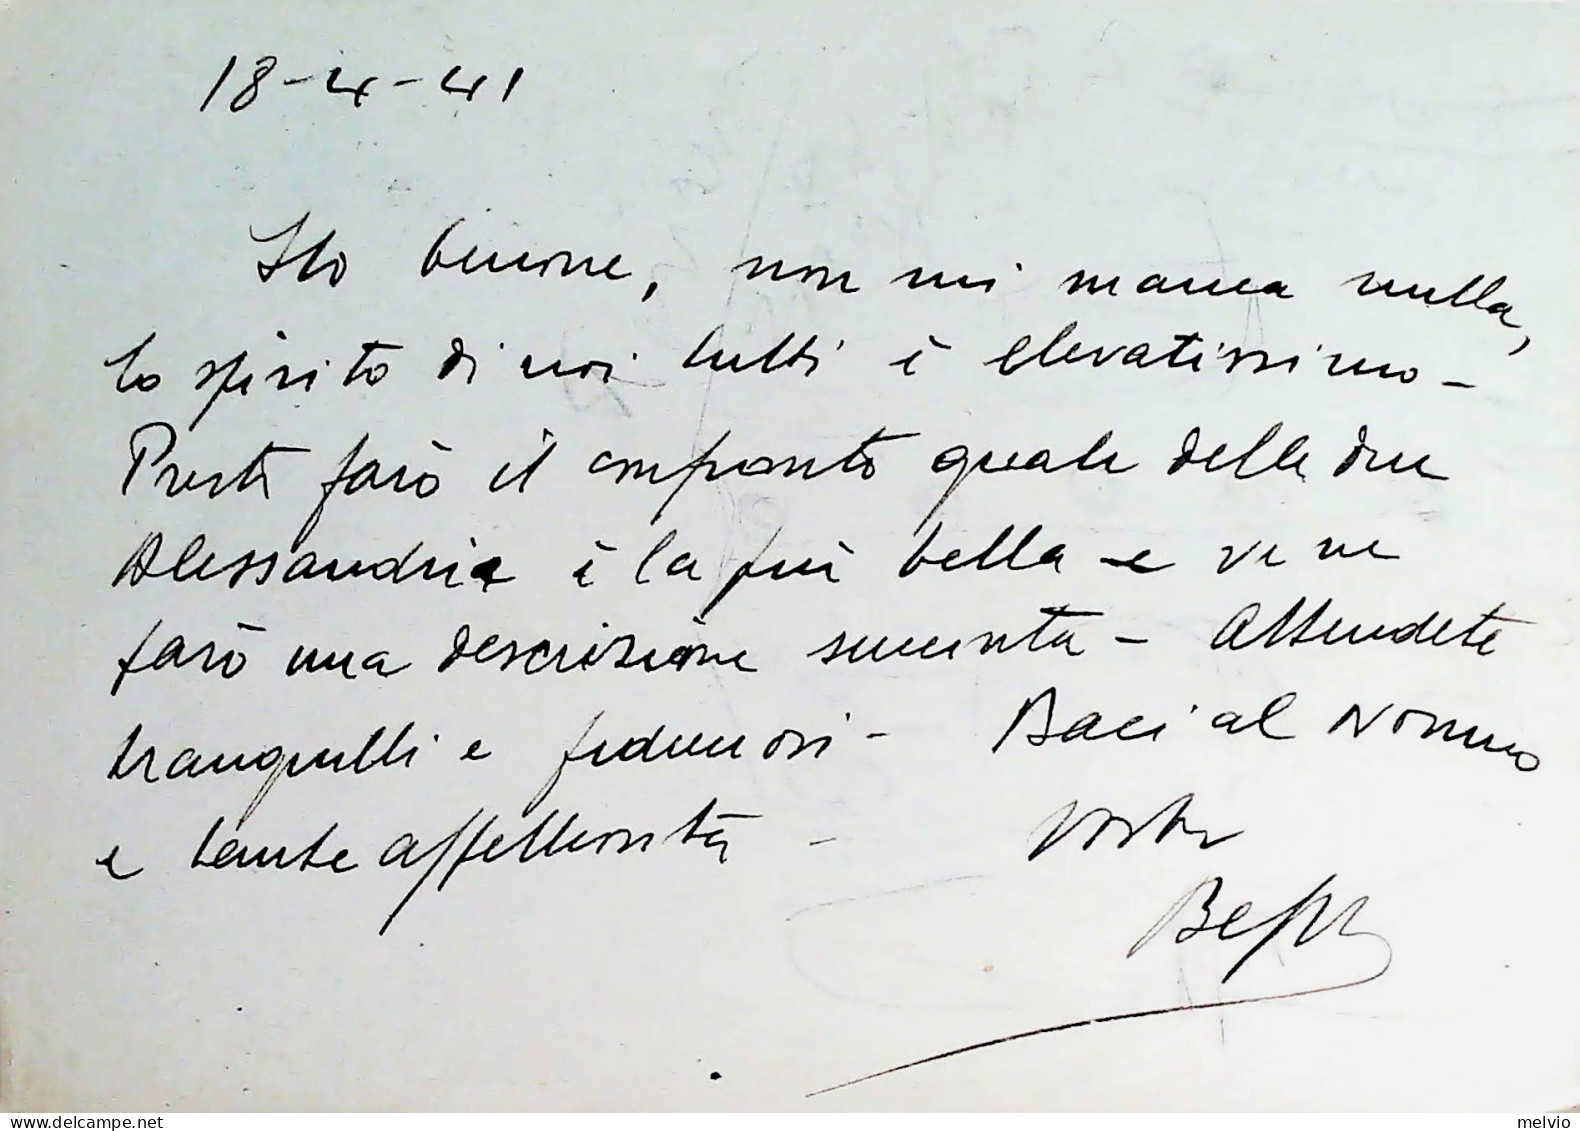 18-4-41
Sto benone, non mi manca nulla,
lo spirito di noi tutti è elevatissimo -
Presto farò il confronto quale delle due
Alessandrie è la più bella - e ve ne
farò una descrizione succinta - Attendete
tranquilli e fiduciosi - Baci al Nonno
e tante affettuosità -
Vostro
Beppe
www.delcampe.net
melvio